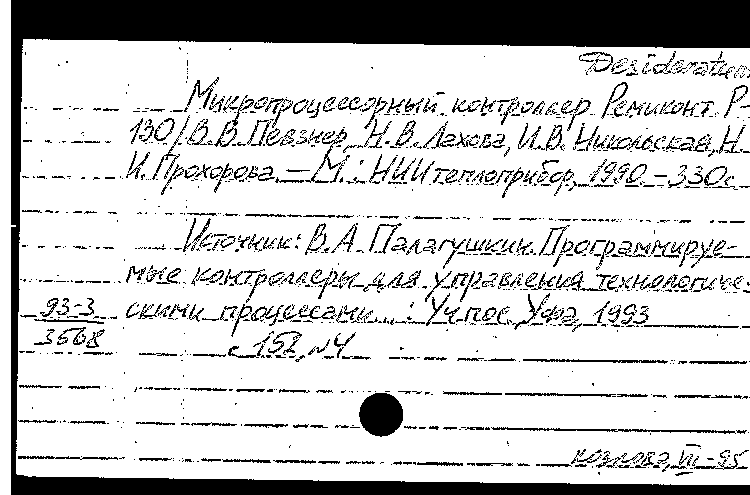 Desideratum
Микропроцессорный контроллер Ремиконт Р-
130/В.В. Певзнер, Н.В. Лахова, И.В. Никольская, Н.
И. Прохорова. – М.: НИИтеплоприбор, 1990. – 330с
Источник: В.А. Палагушкин. Программируе-
мые контроллеры для управления технологиче-
скими процессами...: Уч. пос. Уфа, 1993
93-3
3568
с 152, №4
Козлова, VII-95